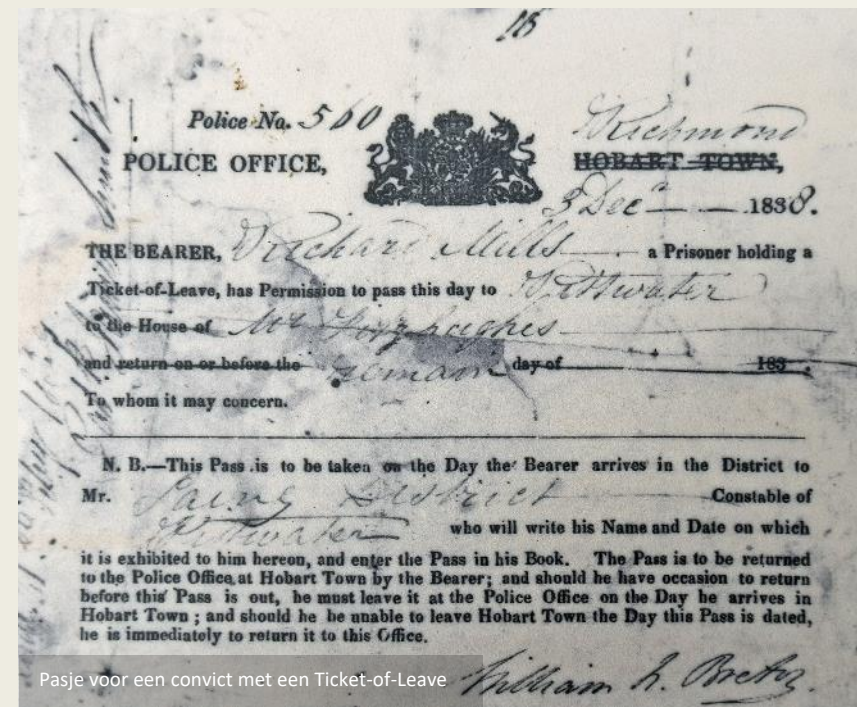 18
Police No. 560
POLICE OFFICE,
Richmond
HOBART TOWN,
3 Dec 1838.
THE BEARER, Richard Mills a Prisoner holding a
Ticket-of-Leave, has Permission to pass this day to Pittwater
to the House of Mr Fitzhughes
and return on or before the remain day of 183 .
To whom it may concern.
N. B.—This Pass is to be taken on the Day the Bearer arrives in the District to
Mr. Laing District Constable of
Pittwater who will write his Name and Date on which
it is exhibited to him hereon, and enter the Pass in his Book. The Pass is to be returned
to the Police Office, at Hobart Town by the Bearer; and should he have occasion to return
before this Pass is out, he must leave it at the Police Office on the Day he arrives in
Hobart Town ; and should he be unable to leave Hobart Town the Day this Pass is dated,
he is immediately to return it to this Office.
William
Pasje voor een convict met een Ticket-of-Leave